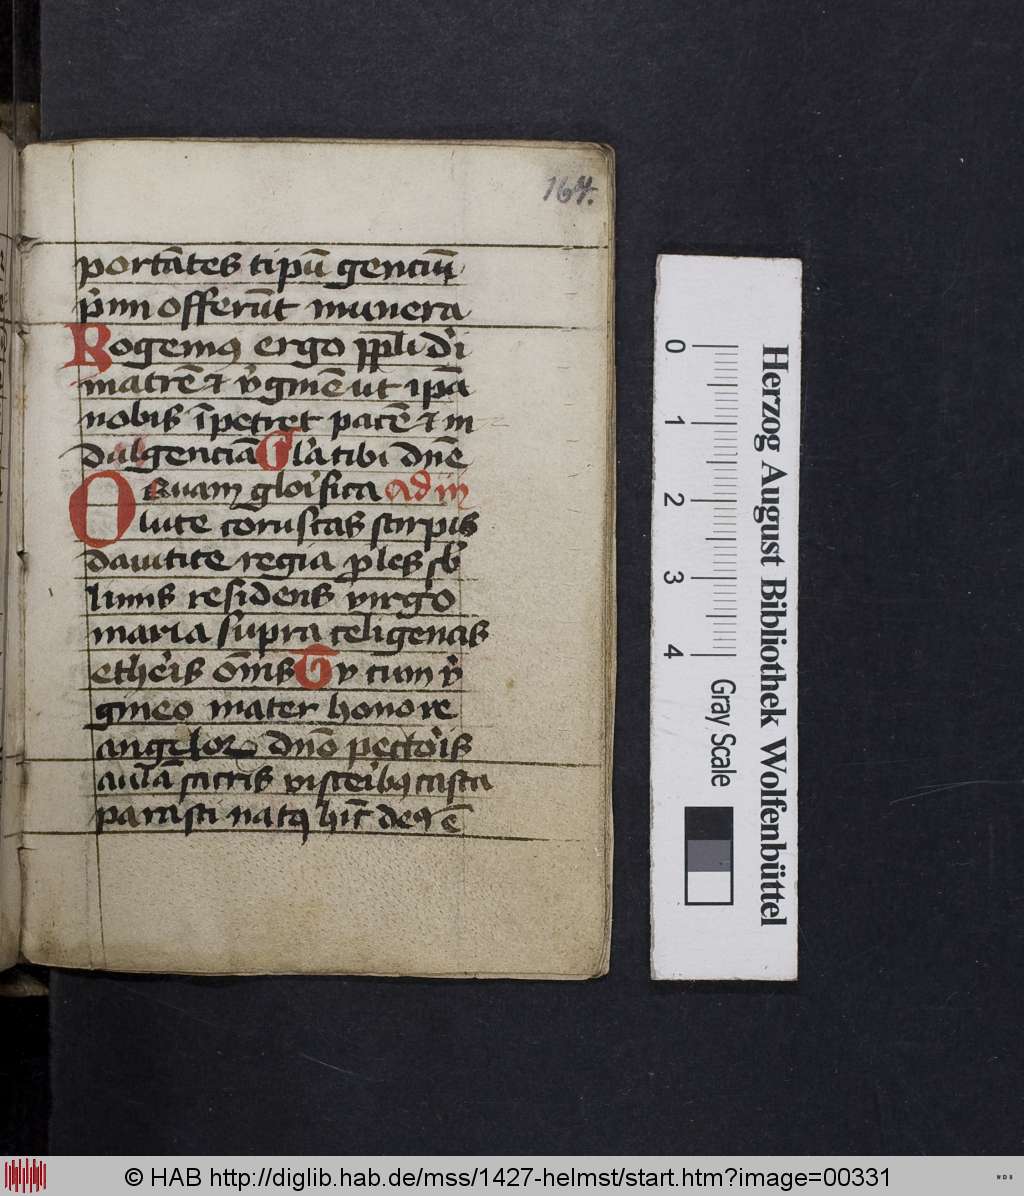 167.
portātes tipū genciū
p̄mi offerūt munera
Rogemꝰ ergo pp̄li di
matrē ⁊ v̄ginē ut ip̄a
nobis īpetret pacē ⁊ in
dulgenciā Glā tibi dn̄e
uam glorifica ad
luce coruscās stirpis
dauitice regia ꝓles sb̄
limis residens virgo
maria supra celigenas
etheris om̄is Tv cum v̄
gineo mater honore
angeloꝝ dn̄o pectoris
aulā sacris visceribꝰ casta
parasti natꝰ hīc deꝰ ē
0
1
2
3
4
Gray Scale
Herzog August Bibliothek Wolfenbüttel
© HAB http://diglib.hab.de/mss/1427-helmst/start.htm?image=00331